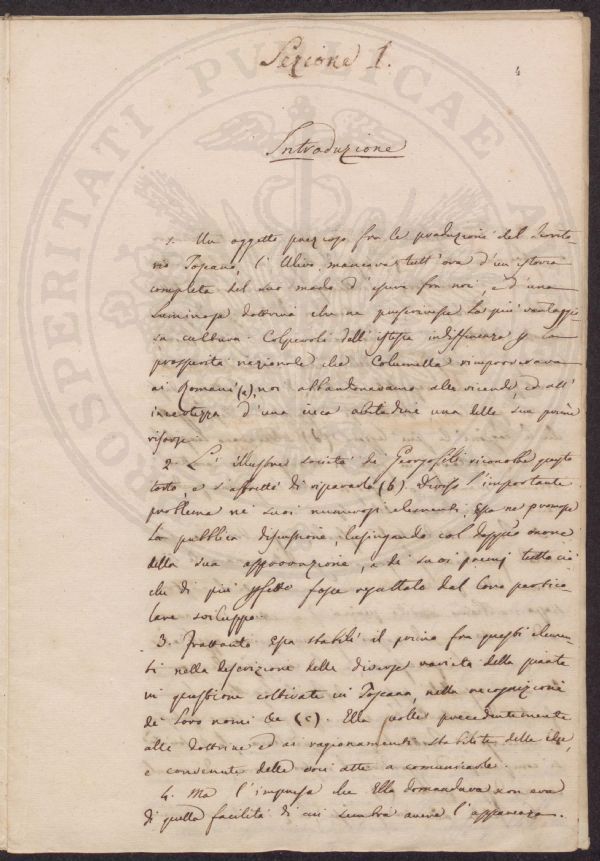 Sezione I.
4
Introduzione
1. Un oggetto prezioso fra le produzioni del Territo-
rio Toscano, l'Ulivo mancava tutt'ora d'un'istoria
completa del suo modo d'essere fra noi, e d'una
luminosa dottrina che ne prescrivesse la più vantaggio-
sa cultura. Colpevoli dell'istessa indifferenza p la
prosperità nazionale che Columella rimproverava
ai Romani (a), noi abbandonavamo alle vicende, ed all'
incertezza d'una cieca abitudine una delle sue prime
risorse.
2. L'illustre società de Georgofili riconobbe questo
torto, e s'affrettò di ripararlo (b) Diviso l'importante
problema ne' suoi numerosi elementi, Essa ne promosse
la pubblica discussione, lusingando col doppio onore
della sua approvazione, e de suoi premj tutto ciò
che di più fosse resultato dal loro partico-
lare sviluppo.
3. Frattanto Essa stabilì il primo fra questi elemen-
ti nella descrizione delle diverse varietà della pianta
in questione coltivate in Toscana, nella recognizione
de loro nomi &c (c). Ella volle precedentemente
alle dottrine ed ai ragionamenti stabilite delle idee,
e convenute delle voci atte a comunicarle.
4. Ma l'impresa che Ella domandava non era
di quella facilità di cui sembra aveva l'apparenza.
PROSPERITATI PUBLICAE